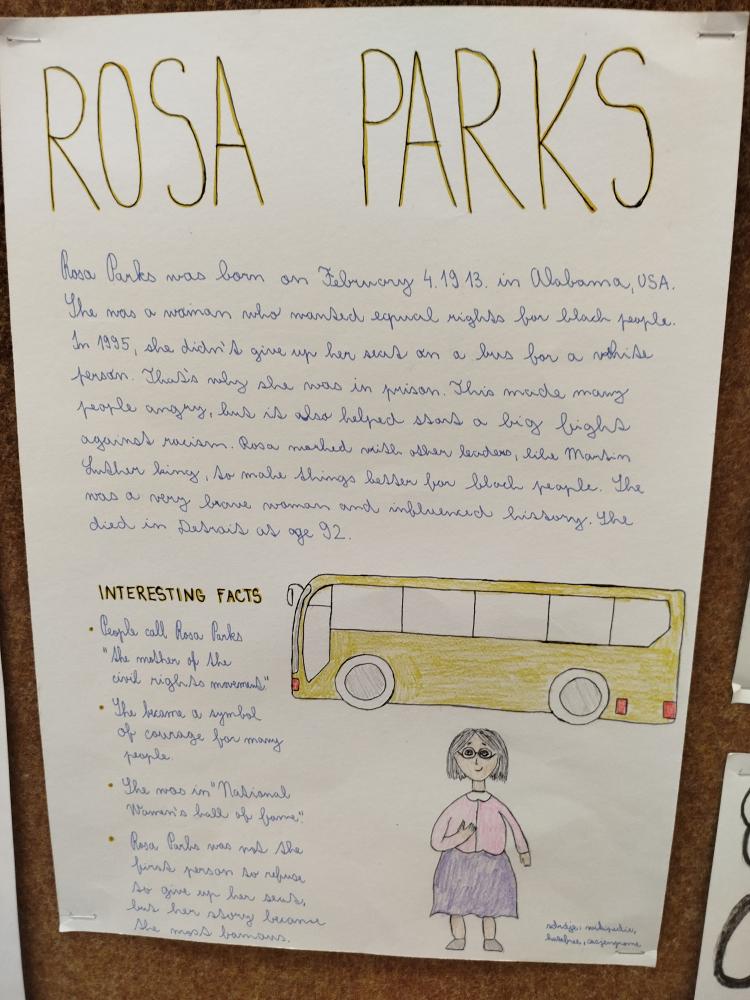 ROSA PARKS
Rosa Parks was born on February 4.1913. in Alabama, USA.
She was a woman who wanted equal rights for black people.
In 1995, she didn't give up her seat on a bus for a white
person. That's why she was in prison. This made many
people angry, but it also helped start a big fight
against racism. Rosa worked with other leaders, like Martin
Luther king, to make things better for black people. She
was a very brave woman and influenced history. She
died in Detroit at age 92.
INTERESTING FACTS
• People call Rosa Parks
"the mother of the
civil rights movement"
• She became a symbol
of courage for many
people.
• She was in "National
Women's hall of fame".
• Rosa Parks was not the
first person to refuse
to give up her seat,
but her story became
the most famous.
wikipedia,